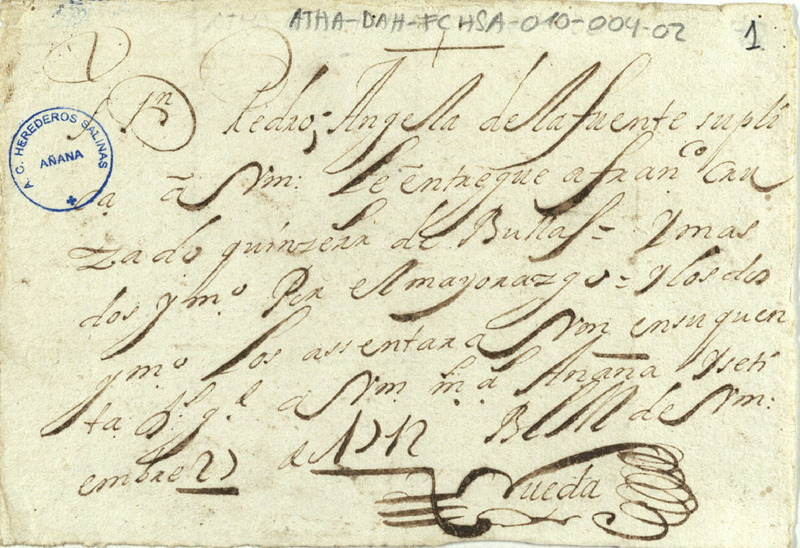 ATHA-DAH-FCHSA-010-004-02
1
A.C. HEREDEROS SALINAS
AÑANA
Pedro; Angella de la fuente supli
ca a Vm: le entregue a fran.co Cru
zado quinze rs de Bullas = Y mas
dos y m.o Por el mayorazgo = y los dos
y m.o los assentara Vm en su quen
ta g.e a Vm m.s a.s Añana y seti
embre 27 de 1712 BLM de Vm:
Rueda